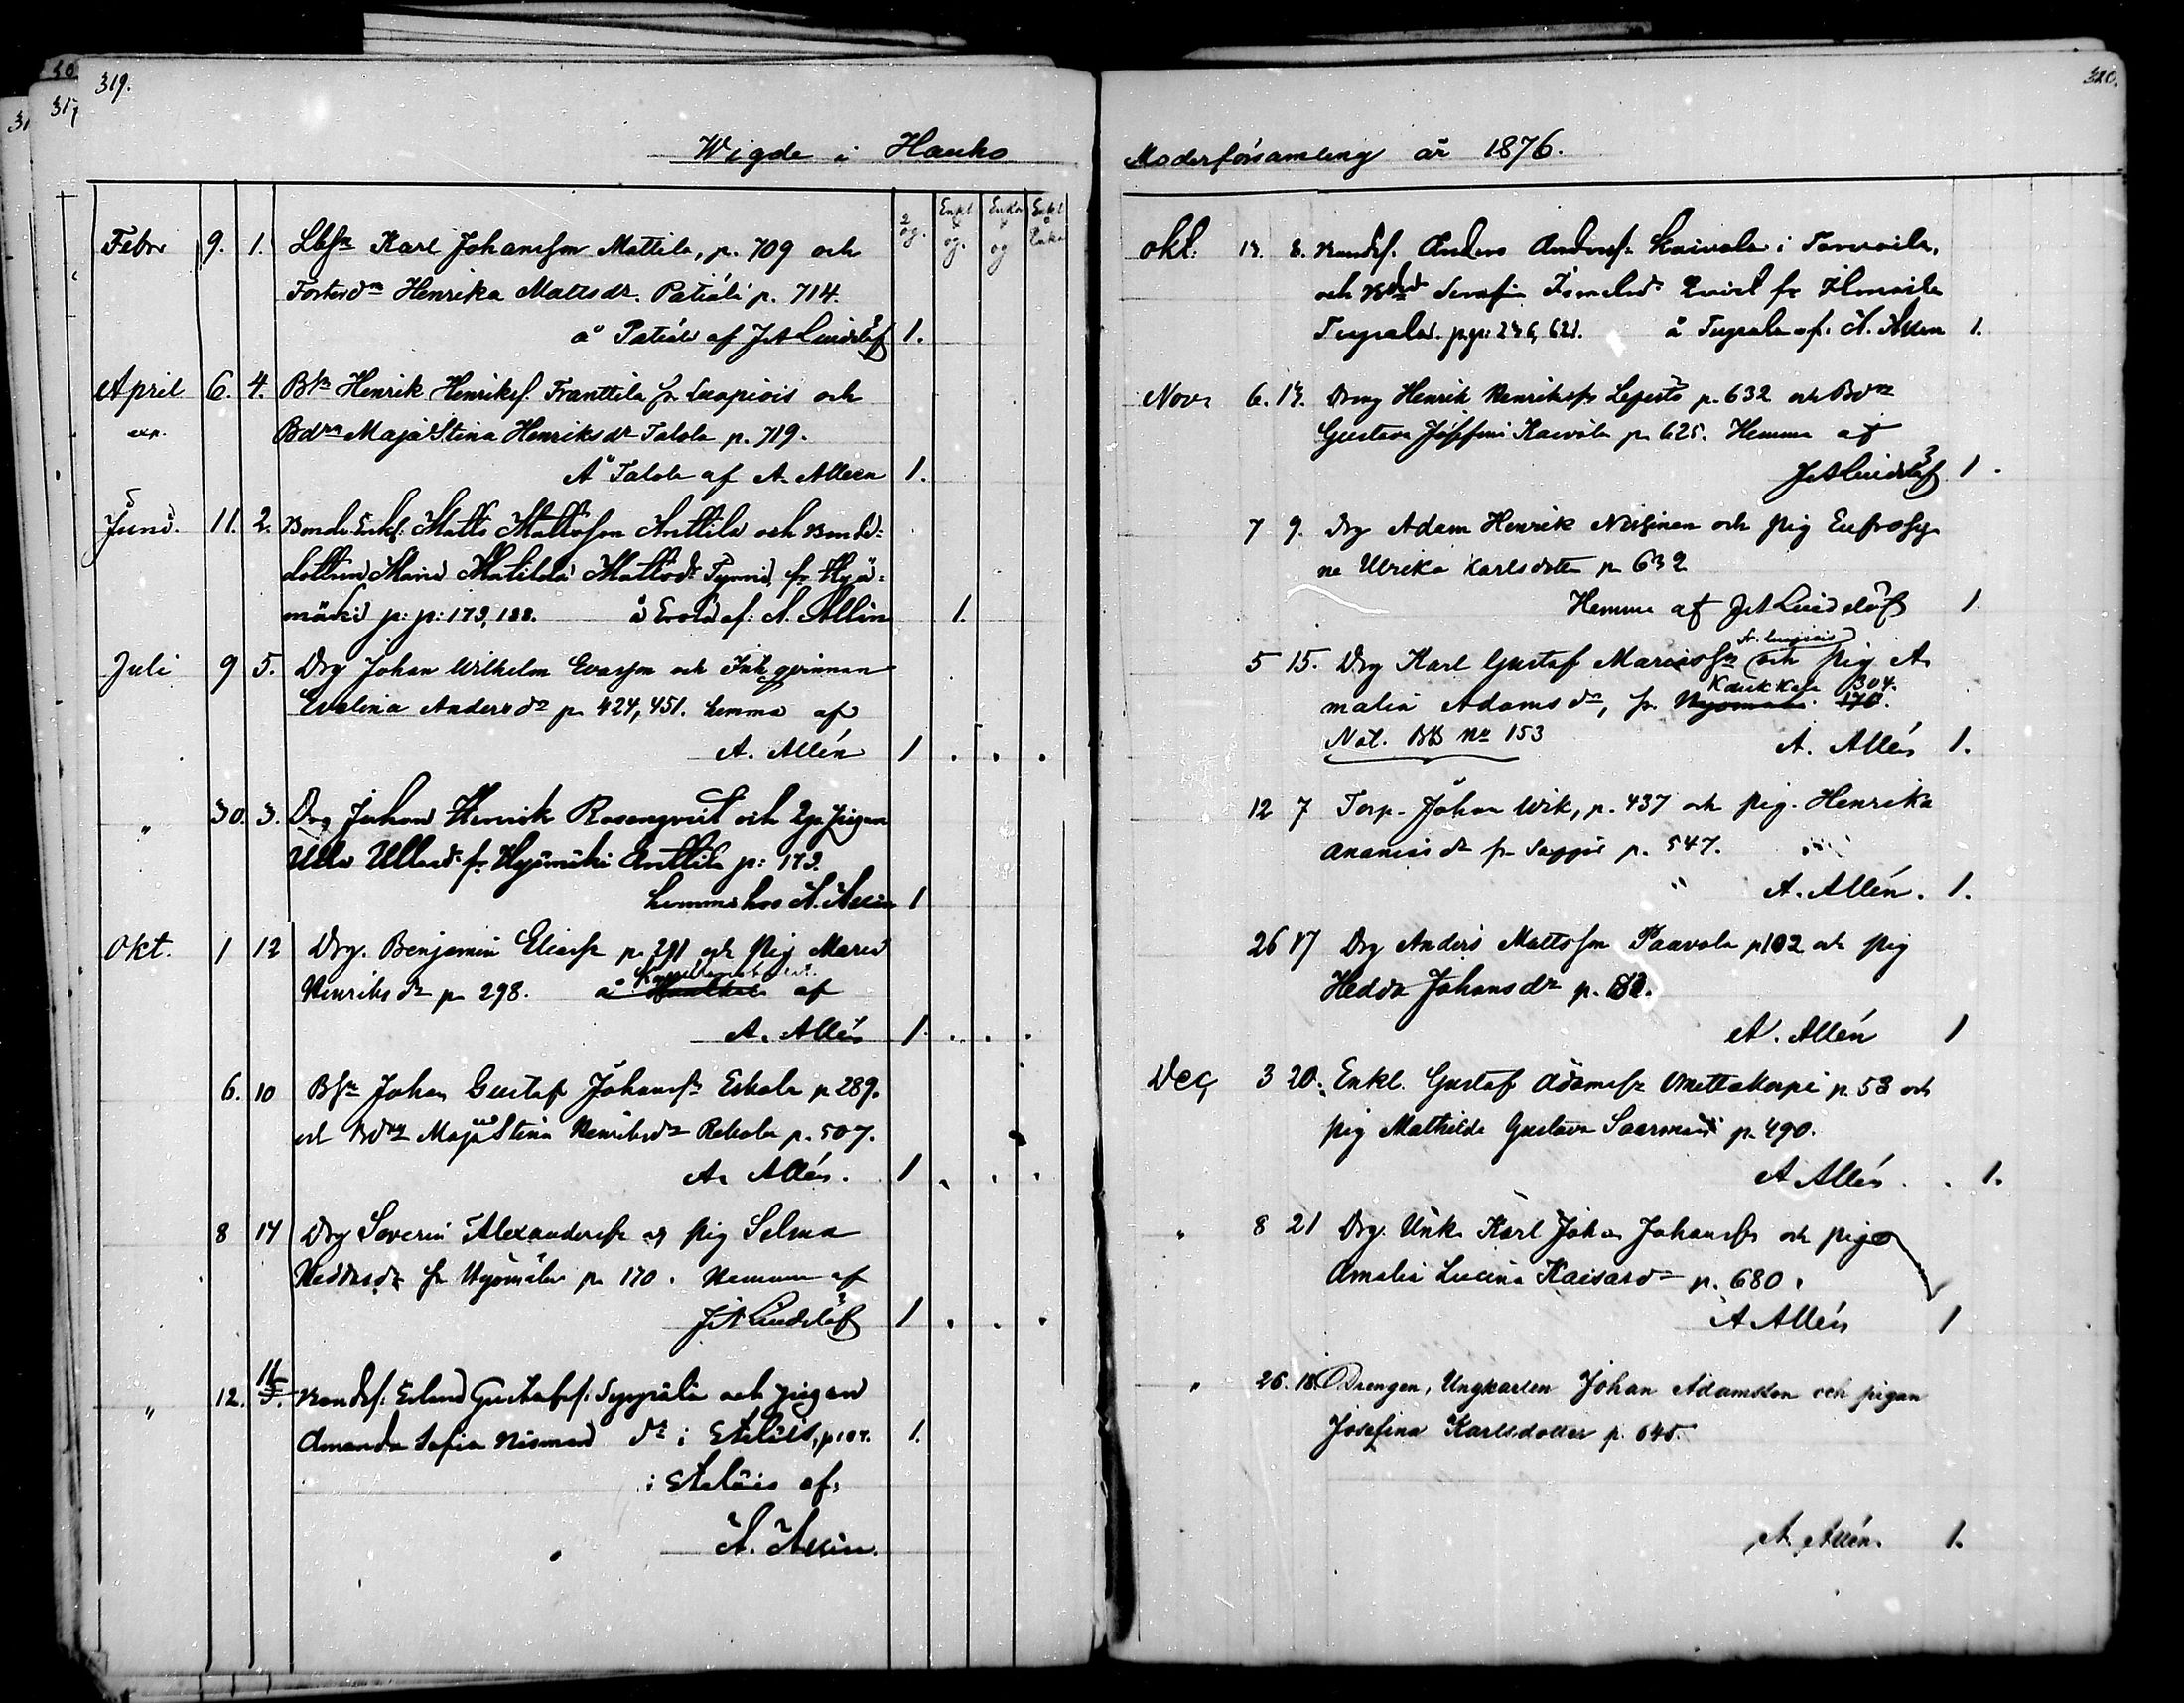 319.
317
Wigde i Hauho
2 og. Enkl & og. Enka & og Enkl & Enka
Febr 9. 1. Lbsn Karl Johansson Mattila, p. 709 och
Fosterdn Henrika Mattsdr. Patiala p. 714.
å Patiala af J A Lindelöf 1.
April 6. 4. Bsn Henrik Henriksf. Franttila fr Luopiois och
exp. Bdrn Maja Stina Henriksdr Talola p. 719.
Å Talola af A. Allén 1.
Juni. 11. 2. Bonde Enkl: Matts Mattsson Anttila och Bonde-
dottren Maria Matilda Mattsdr fr Hyö-
mäki p: p: 173, 188. å af: A. Allén 1.
Juli 9 5. Drg Johan Wilhelm Evasson och Inh. qvinnan
Evelina Andersdr p. 424, 451. hemma af
A. Allén 1
" 30. 3. Drg Johan Henrik Rosenqvist och pigan
Ulla Ulladr fr. Hyömäki Anttila p: 173.
hemma hos A. Allén 1
Okt. 1 12 Drg. Benjamin Eliasfr p. 291 och Pig Maria
Henriksdr p. 298. å af
A. Allén 1.
6. 10 Bsn Johan Gustaf Johansfn Eskola p 289.
och Bdrn Maja Stina Henriksdr Rekola p. 507.
A. Allén. 1
8 14 Drg Severin Alexandersfr og pig Selma
Heddasdr fr Hyömäki p. 170. Hemma af
J A Lindelöf 1
" 12. 11 5. Bondes. Erland Gustafsf. Seppälä och pigan
Amanda Sofia dr i Eteläis, p 1.
i Eteläis af
A. Allén.
320.
Moderförsamling år 1876.
Okt. 8. Bondes. Anders Andersfr Kaivola i
och Serafia fr
p.p: 276, 621. å af. A. Allén 1.
Nov. 6. 13. Dreng Henrik Henriksfr Lepistö p. 632 och Bdrn
Gustava Josefina Kaivola p. 625. Hemma af
J A Lindelöf 1.
7 9. Drg Adam Henrik Nissinen och Pig Eufrosy-
ne Ulrika Karlsdotter p 632
Hemma af J A Lindelöf 1.
fr. Luopiois
5 15. Drg Karl Gustaf Mariasfn och Pig A-
Kaukkala 304.
malia Adamsdr, fr. Hyömäki 170.
Not. BB No 153 A. Allén 1.
12 7 Torp. Johan Wik, p. 437 och Pig. Henrika
Ananiasdr fr Sappi p. 547.
" A. Allén. 1.
26 17 Drg Anders Mattsson Paavola p102 och Pig
Hedda Johansdr p.
A. Allén 1
Dec, 3 20. Enkl. Gustaf Adamsfr Mettakorpi p. 53 och
Pig Mathilda Gustava p. 490.
A Allén. 1.
" 8 21 Drg. Unk. Karl Johan Johansfn och piga
Amalia Lucina Kaisasdr p. 680.
A Allén 1
" 26. 18. Drengen, Ungkarlen Johan Adamsson och pigan
Josefina Karlsdotter p. 645.
A. Allén. 1.